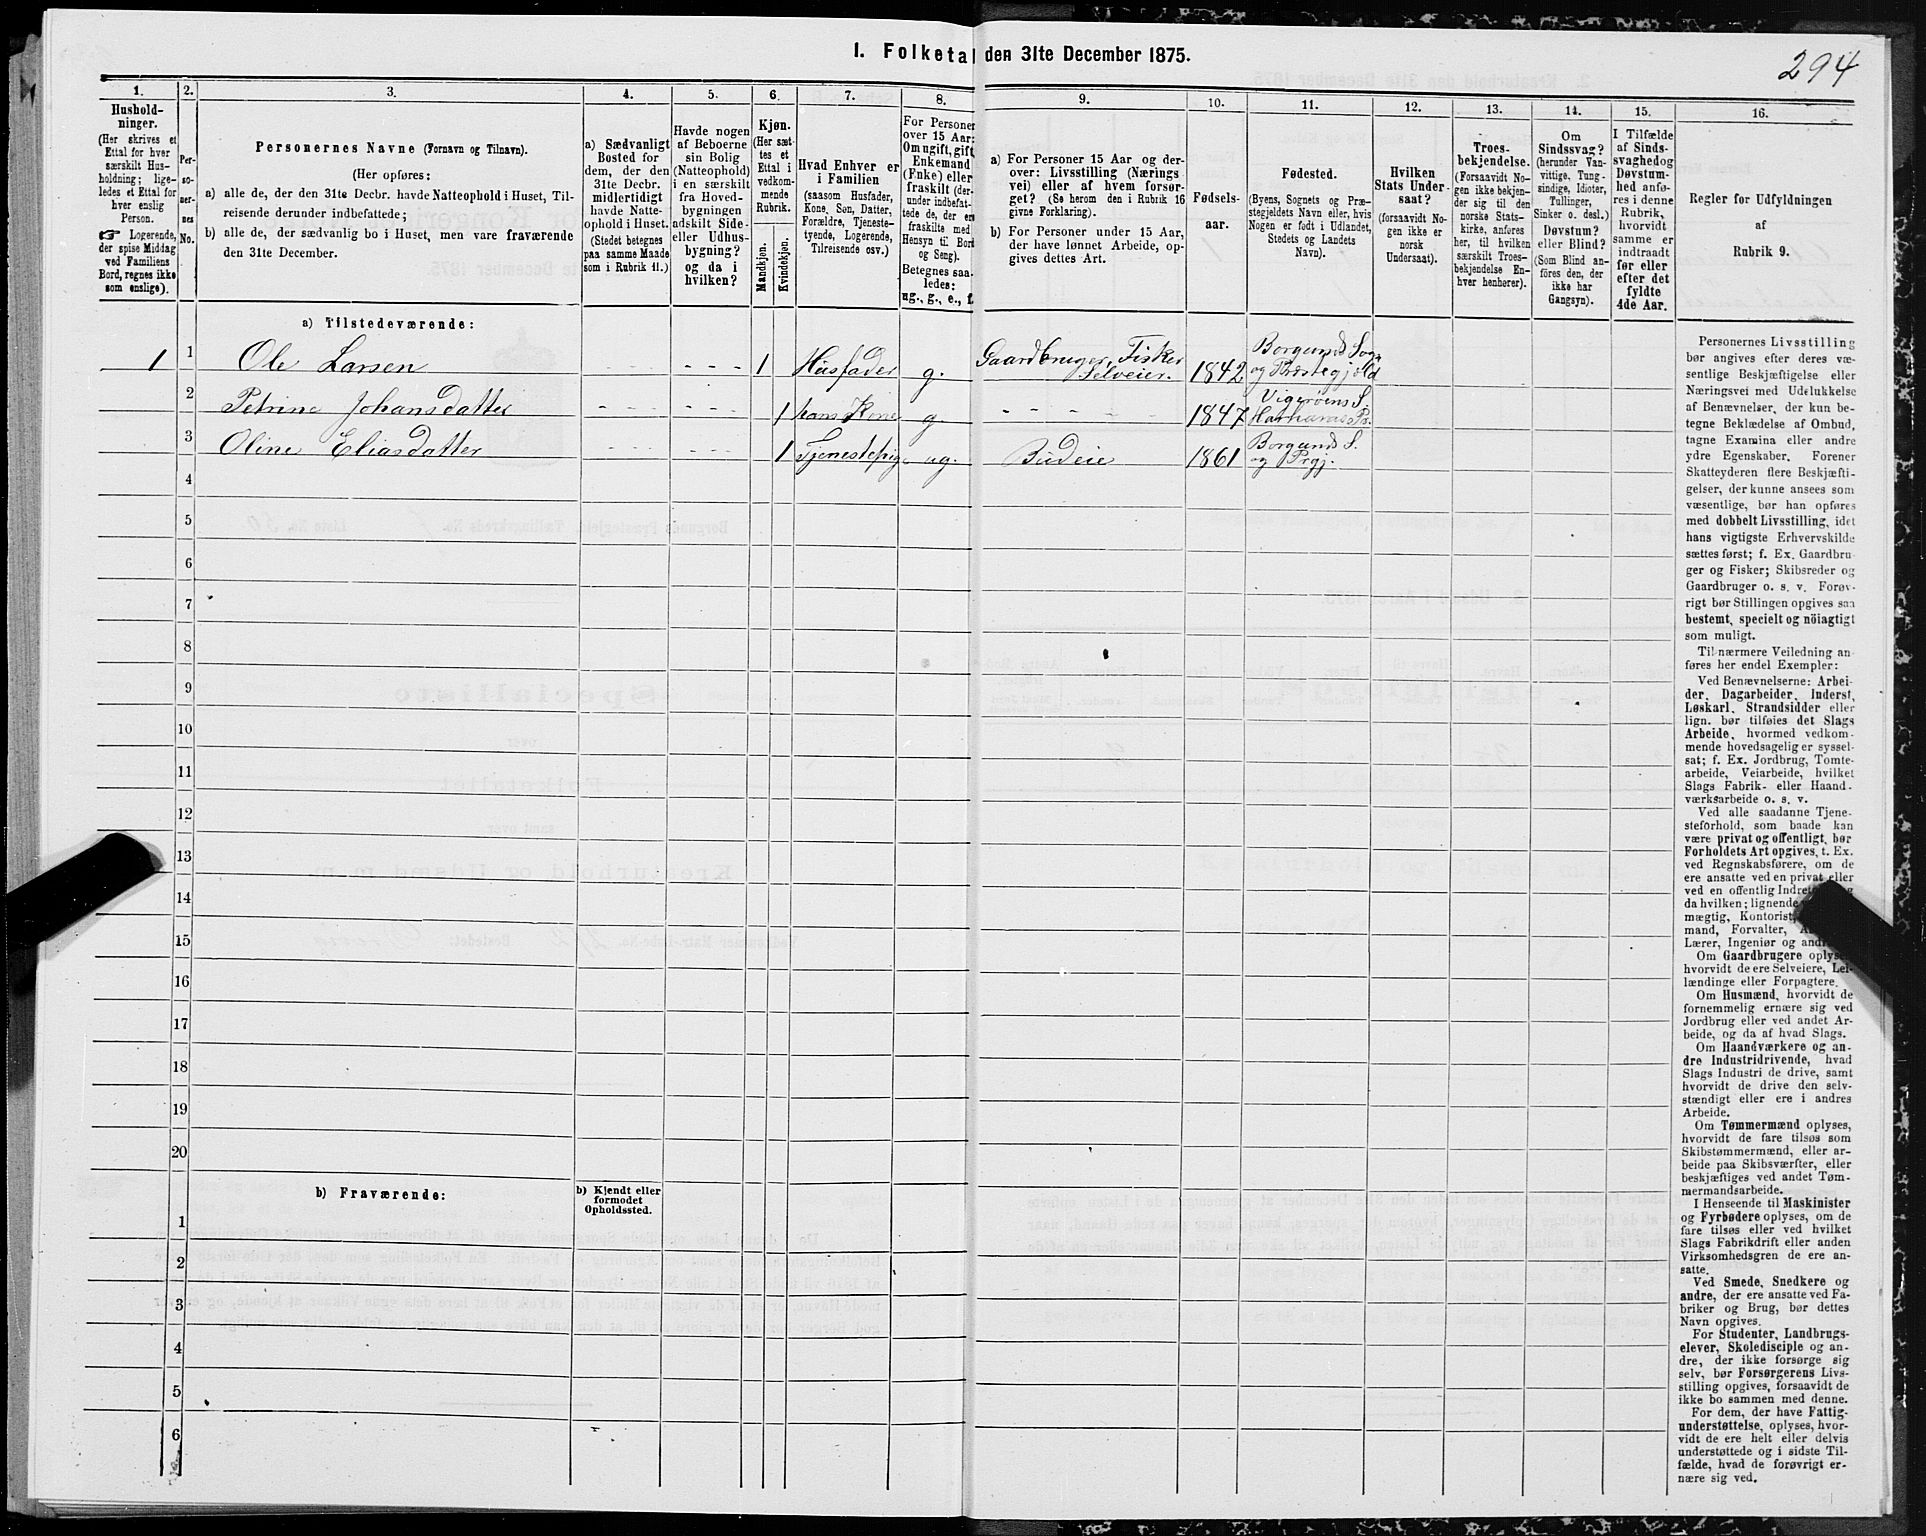 294
I. Folketal den 31te December 1875.
1.
Hushold-
ninger.
(Her skrives et
Ettal for hver
særskilt Hus-
holdning; lige-
ledes et Ettal for
hver enslig
Person.
☞ Logerende,
der spise Middag
ved Familiens
Bord, regnes ikke
som enslige).
2.
Per-
so-
ner-
nes
No.
3.
Personernes Navne (Fornavn og Tilnavn).
(Her opføres:
a) alle de, der den 31te Decbr. havde Natteophold i Huset, Til-
reisende derunder indbefattede;
b) alle de, der sædvanlig bo i Huset, men vare fraværende
den 31te December.
4.
a) Sædvanligt
Bosted for
dem, der den
31te Decbr.
midlertidigt
havde Natte-
ophold i Huset.
(Stedet betegnes
paa samme Maade
som i Rubrik 11.)
5.
Havde nogen
af Beboerne
sin Bolig
(Natteophold)
i en særskilt
fra Hoved-
bygningen
adskilt Side-
eller Udhus-
bygning?
og da i
hvilken?
6.
Kjøn.
(Her sæt-
tes et
Ettal i
vedkom-
mende
Rubrik.
Mandkjøn.
Kvindekjøn.
7.
Hvad Enhver er
i Familien
(saasom Husfader,
Kone, Søn, Datter,
Forældre, Tjeneste-
tyende, Logerende,
Tilreisende osv.)
8.
For Personer
over 15 Aar:
Om ugift, gift,
Enkemand
(Enke) eller
fraskilt (der-
under indbefat-
tede de, der ere
fraskilte med
Hensyn til Bord
og Seng).
Betegnes saa-
ledes:
ug., g., e., f.
9.
a) For Personer 15 Aar og der-
over: Livsstilling (Nærings-
vei) eller af hvem forsør-
get? (Se herom den i Rubrik 16
givne Forklaring).
b) For Personer under 15 Aar,
der have lønnet Arbeide, op-
gives dettes Art.
10.
Fødsels-
aar.
11.
Fødested.
(Byens, Sognets og Præ-
stegjeldets Navn eller, hvis
Nogen er født i Udlandet,
Stedets og Landets
Navn).
12.
Hvilken
Stats Under-
saat?
(forsaavidt No-
gen ikke er
norsk
Undersaat).
13.
Troes-
bekjendelse.
(Forsaavidt No-
gen ikke bekjen-
der sig til den
norske Stats-
kirke, anføres
her, til hvilken
særskilt Troes-
bekjendelse En-
hver henhører).
14.
Om
Sindssvag?
(herunder Van-
vittige, Tung-
sindige, Idioter,
Tullinger,
Sinker o. desl.)
Døvstum?
eller Blind?
(Som Blind an-
føres den, der
ikke har
Gangsyn).
15.
I Tilfælde
af Sinds-
svaghed og
Døvstum-
hed anfø-
res i denne
Rubrik,
hvorvidt
samme er
indtraadt
før eller
efter det
fyldte
4de Aar.
16.
Regler for Udfyldningen
af
Rubrik 9.
a) Tilstedeværende:
1 1 Ole Larsen - - - - - - - 1 Husfader g. Gaardbruger, Fisker Selveier. 1842 Borgunds Sogn og Præstegjeld
2 Petrine Johansdatter - - - - - - - 1 hans Kone g - - - - - 1847 Vigerøens S. Harhams Pr.
3 Oline Eliasdatter - - - - - - - 1 Tjenestepige ug. Budeie 1861 Borgunds S. og Prgj.
4
5
6
7
8
9
10
11
12
13
14
15
16
17
18
19
20
b) Fraværende:
b) Kjendt eller
formodet
Opholdssted.
1
2
3
4
5
6
Personernes Livsstilling
bør angives efter deres væ-
sentlige Beskjæftigelse eller
Næringsvei med Udelukkelse
af Benævnelser, der kun be-
tegne Beklædelse af Ombud,
tagne Examina eller andre
ydre Egenskaber. Forener
Skatteyderen flere Beskjæfti-
gelser, der kunne ansees som
væsentlige, bør han opføres
med dobbelt Livsstilling, idet
hans vigtigste Erhvervskilde
sættes først; f. Ex. Gaardbru-
ger og Fisker; Skibsreder og
Gaardbruger o. s. v. Forøv-
rigt bør Stillingen opgives saa
bestemt, specielt og nöiagtigt
som muligt.
Til nærmere Veiledning an-
føres her endel Exempler:
Ved Benævnelserne: Arbei-
der, Dagarbeider, Inderst,
Løskarl, Strandsidder eller
lign. bør tilføies det Slags
Arbeide, hvormed vedkom-
mende hovedsagelig er syssel-
sat; f. Ex. Jordbrug, Tomte-
arbeide, Veiarbeide, hvilket
Slags Fabrik- eller Haand-
værksarbeide o. s. v.
Ved alle saadanne Tjene-
steforhold, som baade kan
være privat og offentligt, bør
Forholdets Art opgives, t. Ex.
ved Regnskabsførere, om de
ere ansatte ved en privat eller
ved en offentlig
da hvilken; lignende
mægtig, Kontorist,
mand, Forvalter,
Lærer, Ingeniør og
Om Gaardbrugere oplyses,
hvorvidt de ere Selveiere, Lei-
lændinge eller Forpagtere.
Om Husmænd, hvorvidt de
fornemmelig ernære sig ved
Jordbrug eller ved andet Ar-
beide, og da af hvad Slags.
Om Haandværkere og an-
dre Industridrivende, hvad
Slags Industri de drive, samt
hvorvidt de drive den selv-
stændigt eller ere i andres
Arbeide.
Om Tømmermænd oplyses,
hvorvidt de fare tilsøs som
Skibstømmermænd, eller ar-
beide paa Skibsværfter, eller
beskjæftiges ved andet Tøm-
mermandsarbeide.
I Henseende til Maskinister
og Fyrbødere oplyses, om de
fare tilsøs eller ved hvilket
Slags Fabrikdrift eller anden
Virksomhedsgren de ere an-
satte.
Ved Smede, Snedkere og
andre, der ere ansatte ved Fa-
briker og Brug, bør dettes
Navn opgives.
For Studenter, Landbrugs-
elever, Skoledisciple og an-
dre, der ikke forsørge sig
selv, bør Forsørgerens Livs-
stilling opgives, forsaavidt de
ikke bo sammen med denne.
For dem, der have Fattig-
understøttelse, oplyses, hvor-
vidt de ere helt eller delvis
understøttede og i sidste Til-
fælde, hvad de forøvrigt er-
nære sig ved.